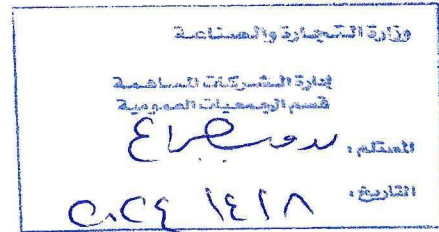 وزارة التجارة والصناعة
إدارة الشركات المساهمة
قسم الجمعيات العمومية
المستلم :
التاريخ : ٨ / ٤ / ٢٠٢٤